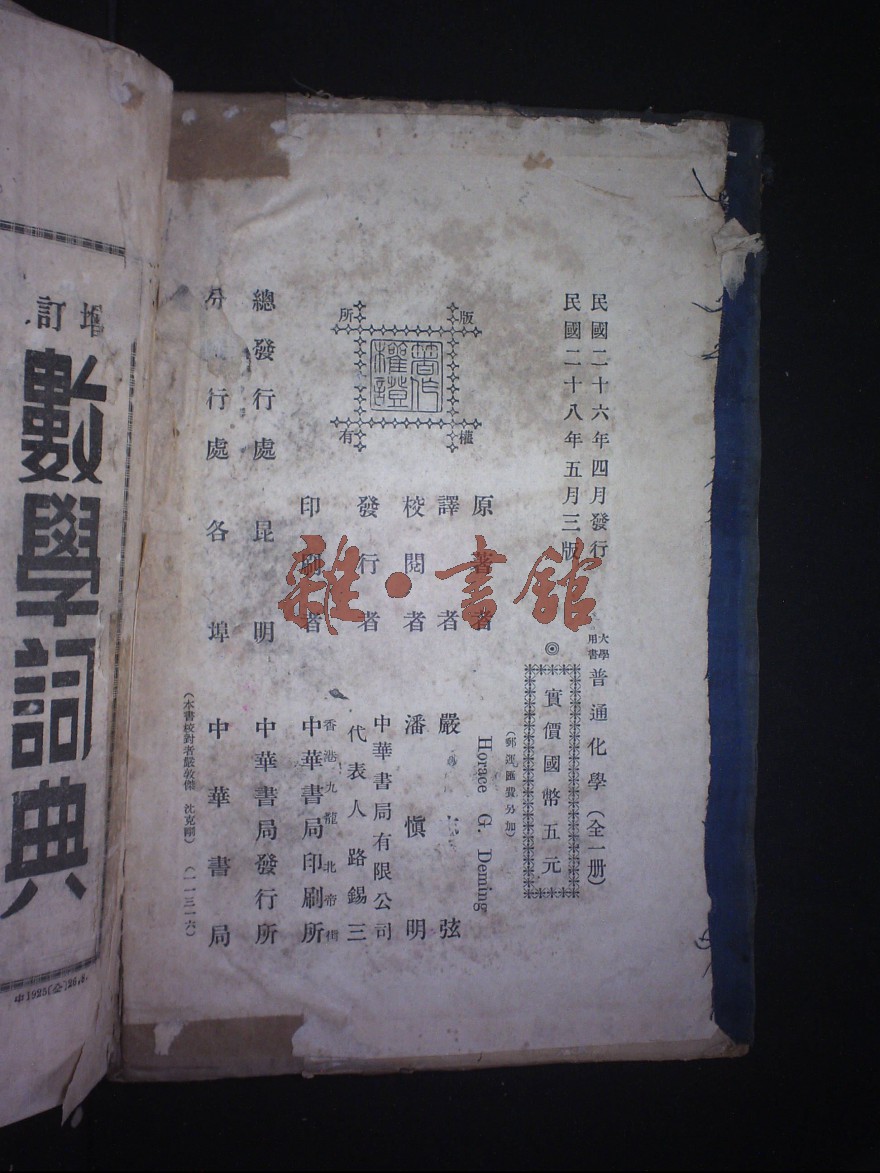 民國二十六年四月發行
民國二十八年五月三版
大學用書 普通化學（全一册）
◎ 實價國幣五元
（郵運匯費另加）
原著者 Horace G. Deming
譯者 嚴 弦
校閱者 潘慎明
發行者 中華書局有限公司
代表人 路錫三
印刷者 香港九龍北帝街
中華書局印刷所
總發行處 昆明 中華書局發行所
分 行處 各埠 中華書局
（本書校對者嚴敦傑 沈克 ）（一一三一六）
版權所有
著作權證
雜·書館
增訂
數學詞典
中1925(全)26,6.